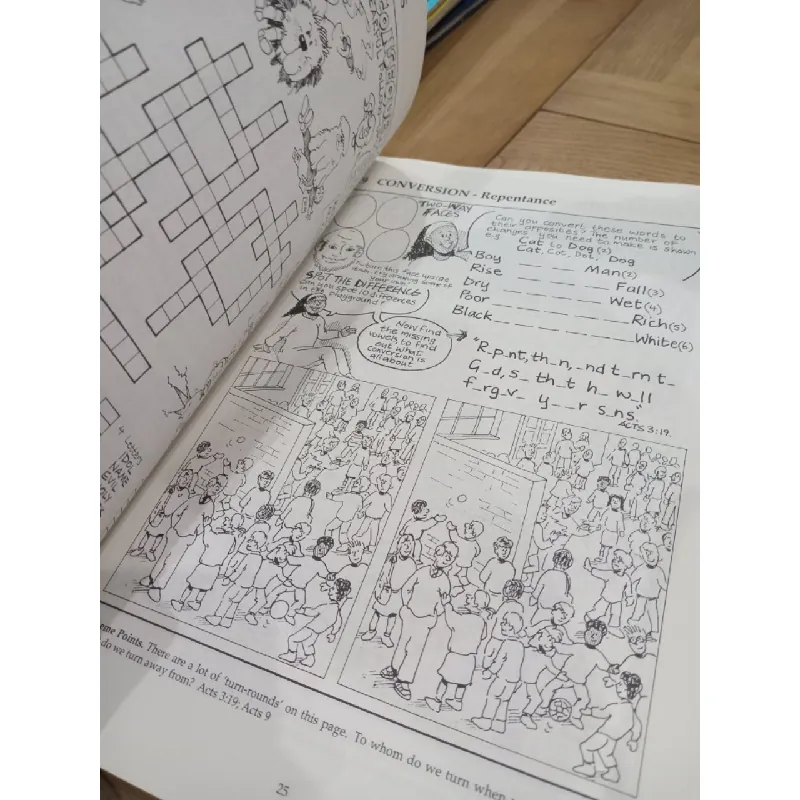 CONVERSION - Repentance
TWO-WAY
FACES
Can you convert these words to
their opposites? The number of
changes you need to make is shown
e.g. Cat to Dog(3)
Cat, Cot, Dot, Dog
Boy _ _ _ _ _ Man(2)
Rise _ _ _ _ _ Fall(3)
Dry _ _ _ _ _ Wet(4)
Poor _ _ _ _ _ Rich(5)
Black _ _ _ _ _ White(6)
Turn this face upside
down. Try drawing some of
your own.
SPOT THE DIFFERENCE
Can you spot 10 differences
in the playground?
Now find
the missing
vowels to find
out what
conversion is
all about
"R_p_nt, th_n, _nd t_rn t_
G_d, s_ th_t h_ w_ll
f_rg_v_ y__r s_ns."
ACTS 3:19
4 Letters
IDOL
NAME
EVIL
There are a lot of 'turn-rounds' on this page. To whom do we turn when
do we turn away from? Acts 3:19; Acts 9
25